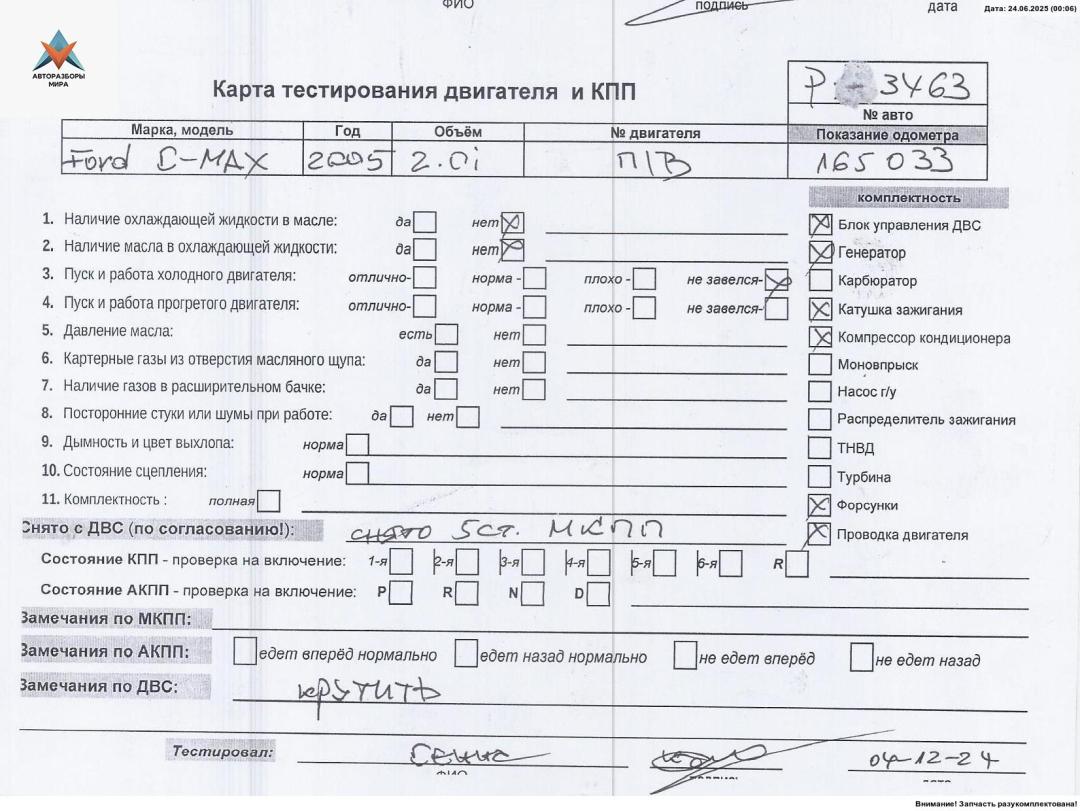 ФИО подпись дата Дата: 24.06.2025 (00:06)
АВТОРАЗБОРЫ
МИРА
Карта тестирования двигателя и КПП
3463
№ авто
Марка, модель Год Объём № двигателя Показание одометра
Ford C-MAX 2005 2.0i П/В 165 033
комплектность
1. Наличие охлаждающей жидкости в масле: да нет Блок управления ДВС
2. Наличие масла в охлаждающей жидкости: да нет Генератор
3. Пуск и работа холодного двигателя: отлично- норма - плохо - не завелся- Карбюратор
4. Пуск и работа прогретого двигателя: отлично- норма - плохо - не завелся- Катушка зажигания
5. Давление масла: есть нет Компрессор кондиционера
6. Картерные газы из отверстия масляного щупа: да нет Моновпрыск
7. Наличие газов в расширительном бачке: да нет Насос г/у
8. Посторонние стуки или шумы при работе: да нет Распределитель зажигания
9. Дымность и цвет выхлопа: норма ТНВД
10. Состояние сцепления: норма Турбина
11. Комплектность : полная Форсунки
Снято с ДВС (по согласованию!): снято 5ст. МКПП Проводка двигателя
Состояние КПП - проверка на включение: 1-я 2-я 3-я 4-я 5-я 6-я R
Состояние АКПП - проверка на включение: P R N D
Замечания по МКПП:
Замечания по АКПП: едет вперёд нормально едет назад нормально не едет вперёд не едет назад
Замечания по ДВС: крутить
Тестировал: 04-12-24
ФИО подпись дата
Внимание! Запчасть разукомплектована!